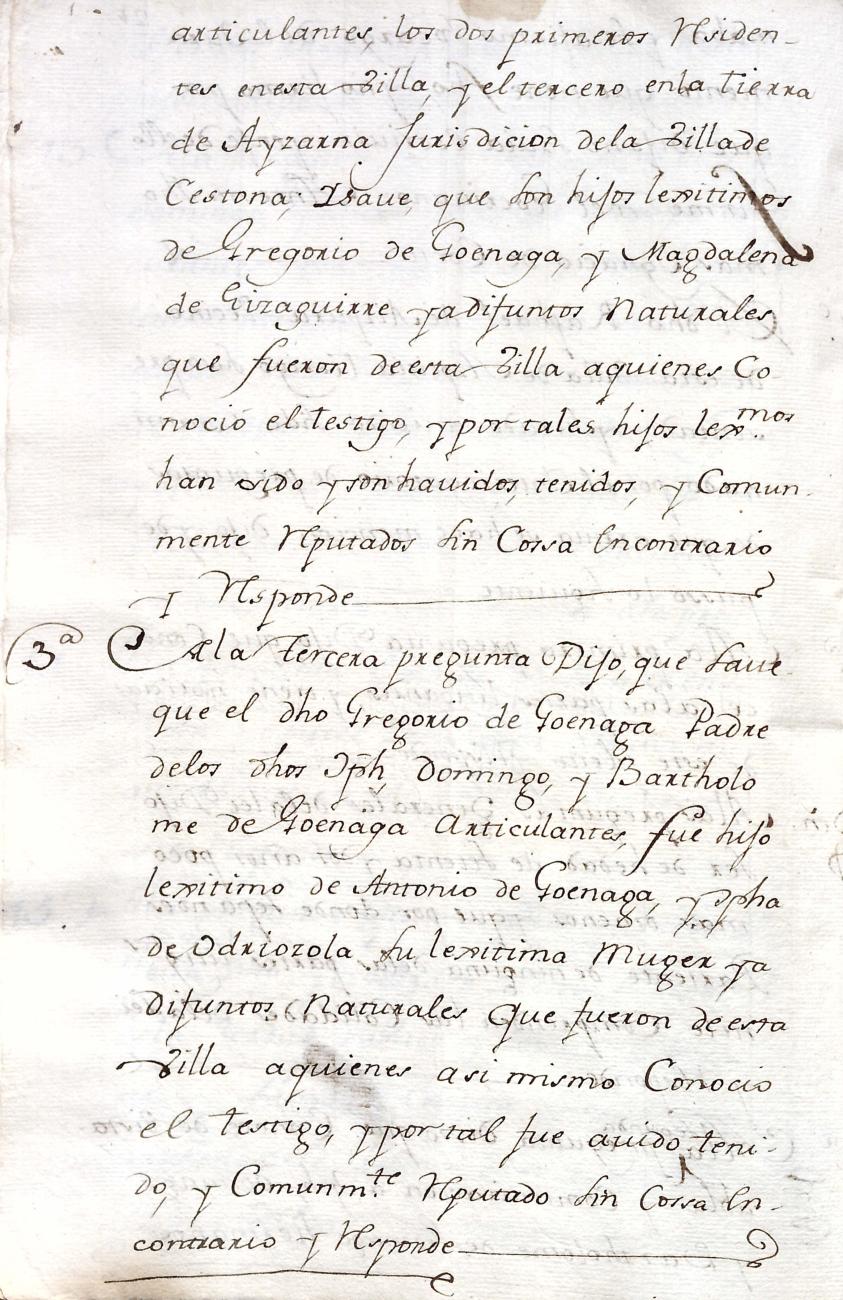 articulantes, los dos primeros Residen-
tes enesta Billa, y el tercero enla tierra
de Ayzarna Jurisdicion dela Billa de
Cestona; Isave, que son hijos lexitimos
de Gregorio de Goenaga, y Magdalena
de Eizaguirre ya difuntos Naturales
que fueron de esta Billa aquienes Co-
noció el testigo, y por tales hijos lexmos.
han sido y son havidos, tenidos, y Comun-
mente Reputados sin Cossa Encontrario
I Responde
3a A la tercera pregunta Dijo, que save
que el dho Gregorio de Goenaga Padre
delos dhos Jph, Domingo, y Bartholo
me de Goenaga Articulantes, fue hijo
lexitimo de Antonio de Goenaga, y Jpha
de Odriozola su lexitima Muger ya
difuntos Naturales que fueron de esta
Billa aquienes asi mismo Conocio
el testigo, y por tal fue avido, teni-
do, y Comunm.te Reputado sin Cossa En-
contrario y Responde